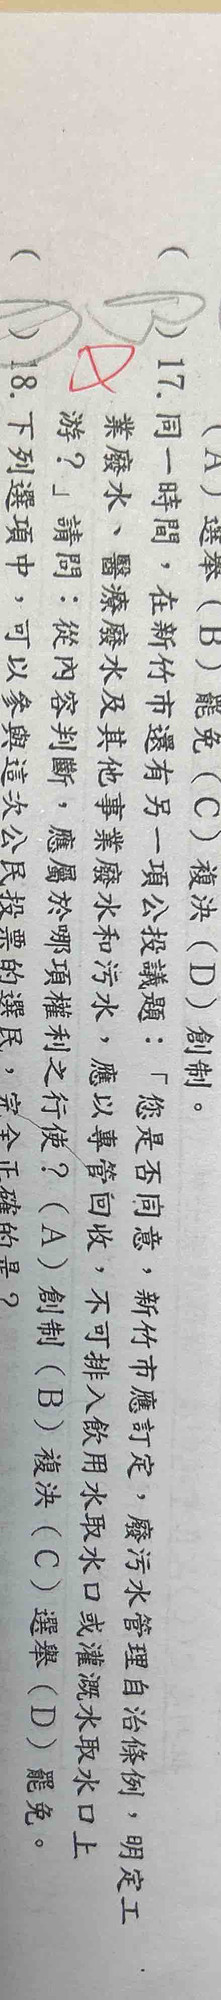 (A)選舉(B)罷免(C)複決(D)創制。
( B )17.同一時間,在新竹市還有另一項公投議題:「您是否同意,新竹市應訂定,廢污水管理自治條例,明定工
A 業廢水、醫療廢水及其他事業廢水和污水,應以專管回收,不可排入飲用水取水口或灌溉水取水口上
游?」請問:從內容判斷,應屬於哪項權利之行使?(A)創制(B)複決(C)選舉(D)罷免。
( D )18.下列選項中,可以參與這次公民投票的選民,完全正確的是?